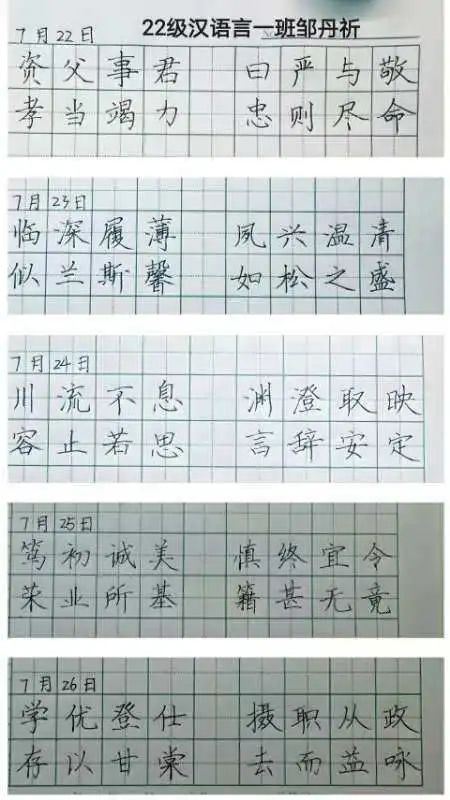 22级汉语言一班邹丹祈
7月22日
资父事君 曰严与敬
孝当竭力 忠则尽命
7月23日
临深履薄 夙兴温清
似兰斯馨 如松之盛
7月24日
川流不息 渊澄取映
容止若思 言辞安定
7月25日
笃初诚美 慎终宜令
荣业所基 籍甚无竟
7月26日
学优登仕 摄职从政
存以甘棠 去而益咏